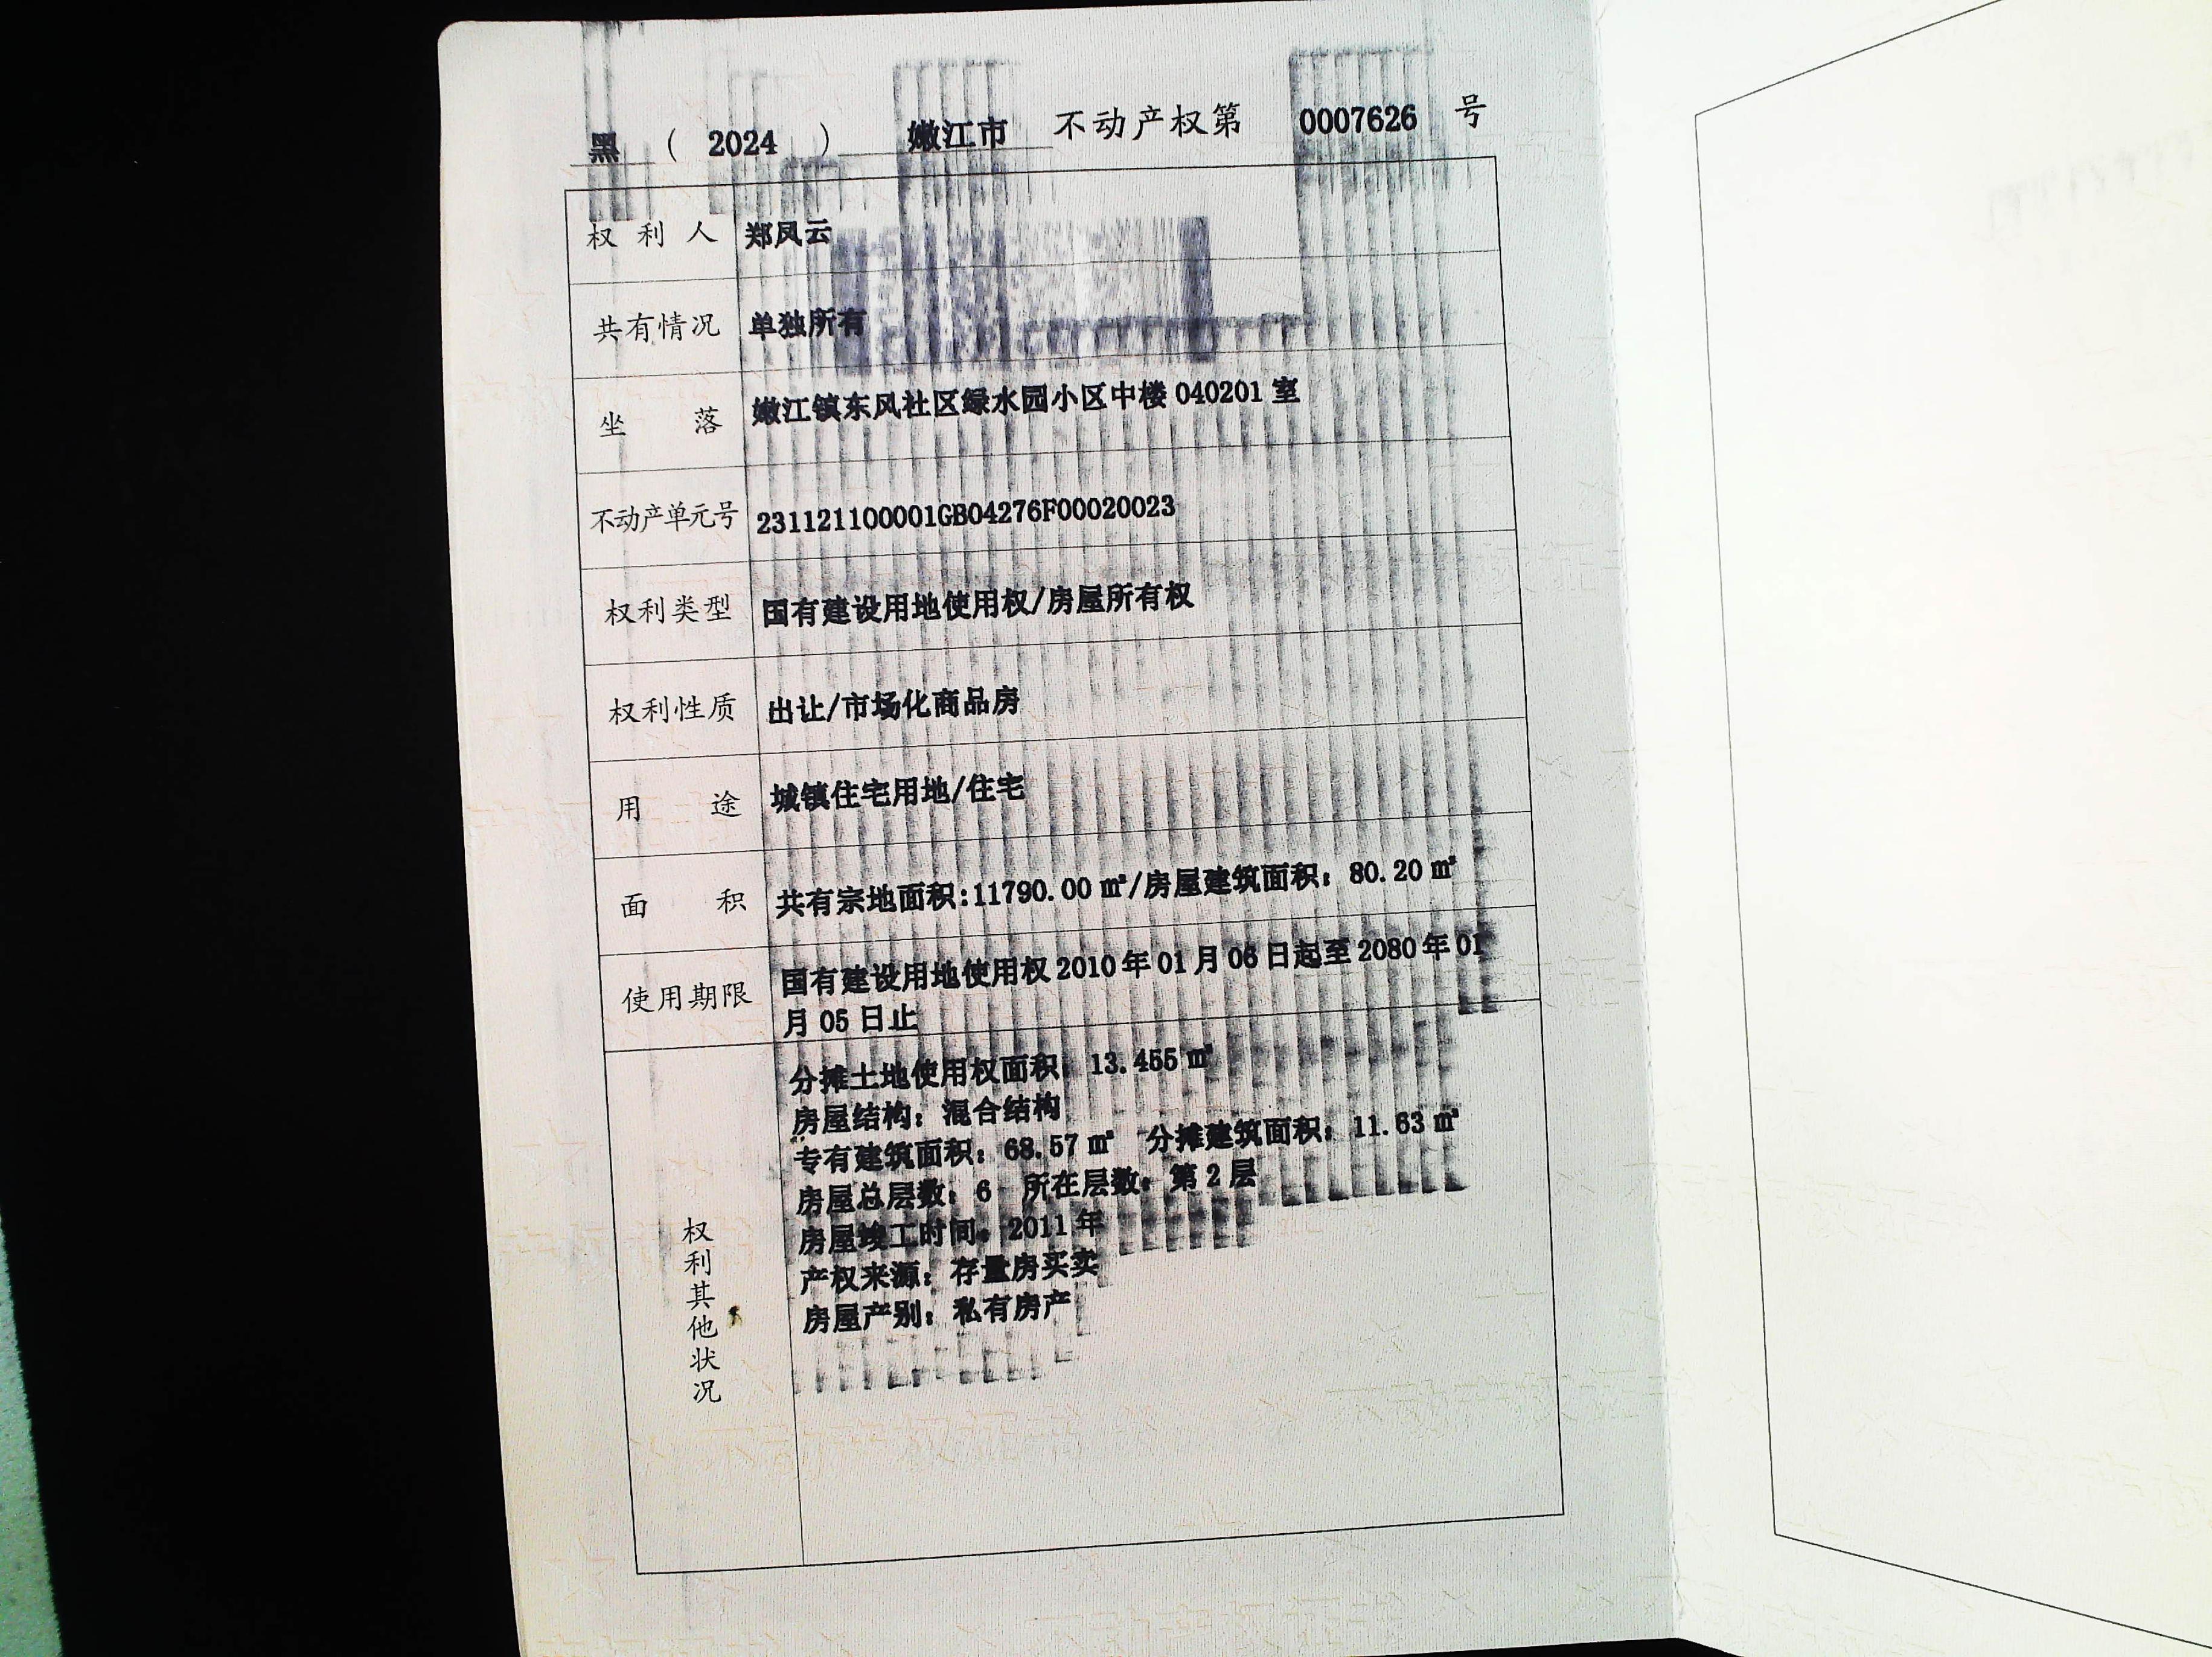 黑 ( 2024 ) 嫩江市 不动产权第 0007626 号
权利人 郑凤云
共有情况 单独所有
坐落 嫩江镇东风社区绿水园小区中楼 040201 室
不动产单元号 231121100001GB04276F00020023
权利类型 国有建设用地使用权/房屋所有权
权利性质 出让/市场化商品房
用途 城镇住宅用地/住宅
面积 共有宗地面积:11790.00 ㎡/房屋建筑面积：80.20 ㎡
使用期限 国有建设用地使用权 2010 年 01 月 06 日起至 2080 年 01
月 05 日止
权利其他状况
分摊土地使用权面积：13.455 ㎡
房屋结构：混合结构
专有建筑面积：68.57 ㎡ 分摊建筑面积：11.63 ㎡
房屋总层数：6 所在层数：第 2 层
房屋竣工时间：2011 年
产权来源：存量房买卖
房屋产别：私有房产